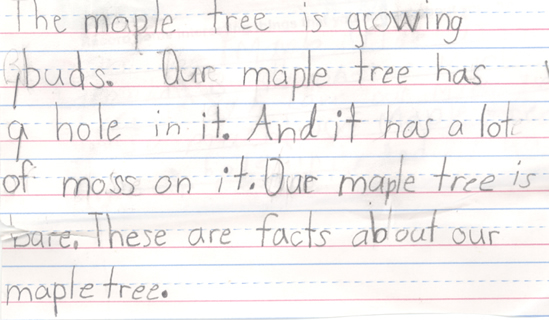 The maple tree is growing
buds. Our maple tree has
a hole in it. And it has a lot
of moss on it. Our maple tree is
bare. These are facts about our
maple tree.